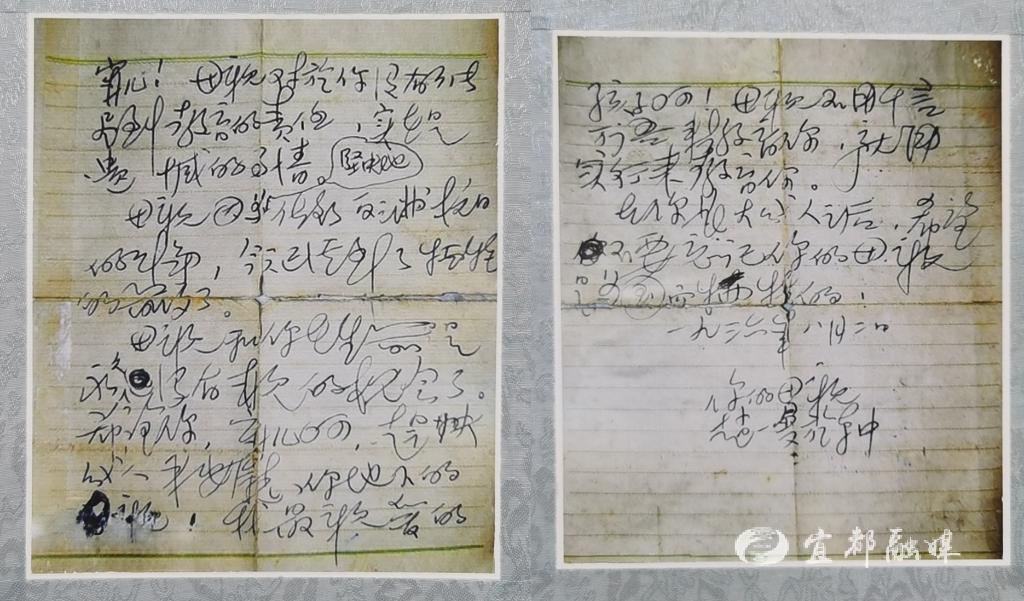 宁儿！母亲对于你没有能尽
到教育的责任，实在是
遗憾的事情。坚决地
母亲因为做了反满抗日
的斗争，今天已经到了牺牲
的前夕了。
母亲和你在生前是
永久没有再见的机会了。
希望你，宁儿啊！赶快
成人来安慰你地下的
母亲！我最亲爱的
孩子啊！母亲不用千言
万语来教育你，就用
实行来教育你。
在你长大成人之后，希望
不要忘记你的母亲
是为国而牺牲的！
一九三六年八月二日
你的母亲
赵一曼于车中
宜都融媒